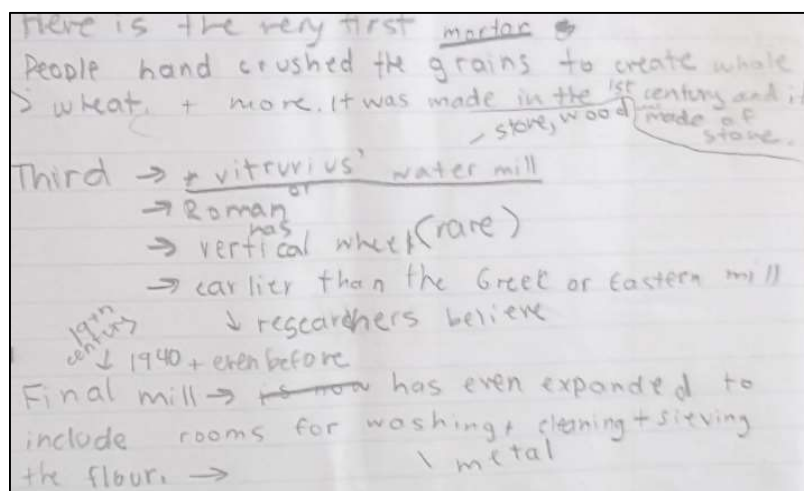 Here is the very first mortar
People hand crushed the grains to create whole
wheat, + more. It was made in the 1st century and it
- stone, wood made of
stone.
Third → vitruvius' water mill
or
→ Roman
has
→ vertical wheel (rare)
→ earlier than the Greek or Eastern mill
↓ researchers believe
19th
century
↓ 1940 + even before
Final mill → is now has even expanded to
include rooms for washing, cleaning + sieving
the flour. → \ metal